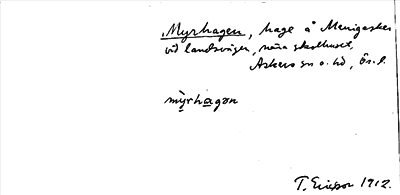 Myrhagen, hage å Menigasker
vid landsvägen, nära skolhuset,
Askers sn o. hd, Ör. l.
mỳrhagən
T. Ericsson 1912.